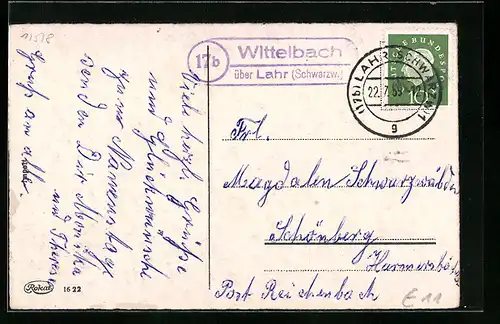 11578
17b
Wittelbach
über Lahr (Schwarzw.)
(17b) LAHR (SCHWARZW) 1
22.7.
g
Viele herzl. Grüße
und Glückwünsche
zum Namenstag
senden Dir Monika
und Theresia
Gruß an alle
Frl.
Magdalena Schwarzwälder
Schönberg
Harmersbach
Post Reichenbach
€ 11
Rokat
1622